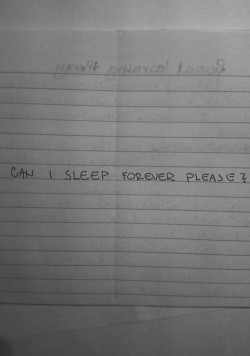 CAN I SLEEP FOREVER PLEASE?